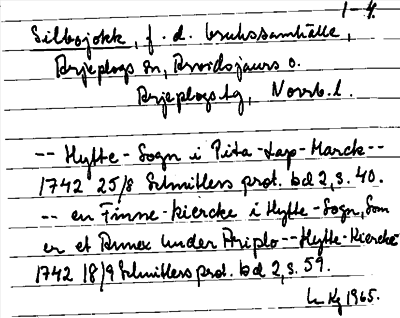 1-4.
Silbojokk, f. d. brukssamhälle,
Arjeplogs sn, Arvidsjaurs o.
Arjeplogs tg, Norrb. l.
-- Hytte-Sogn i Pita-Lap-Marck--
1742 25/8 Schnitlers prot. bd 2, s. 40.
-- en Finne-Kiercke i Hytte-Sogn, Som
er et Annex under Ariplo--Hytte-Kiercke
1742 18/9 Schnitlers prot. bd 2, s. 59.
1965.